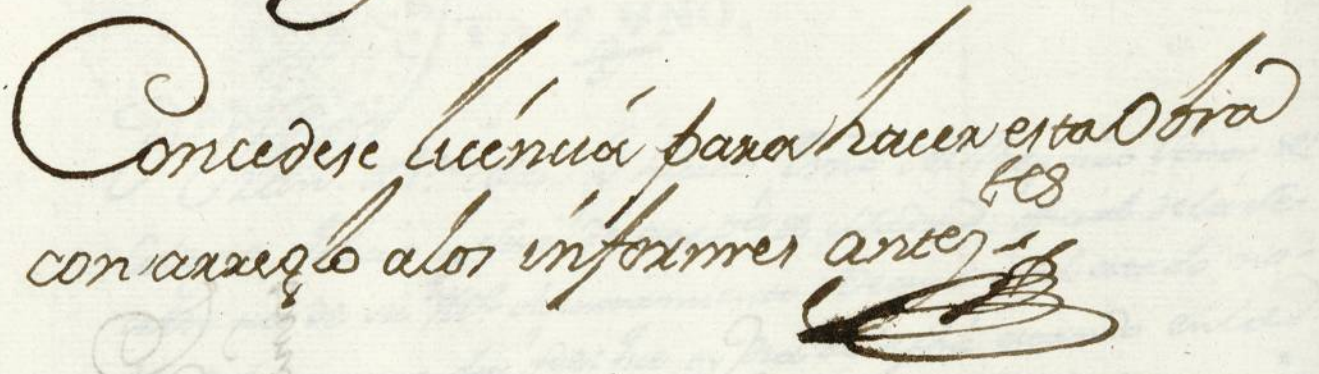 Concedese licencia para hacer esta Obra
con arreglo a los informes antez.tes